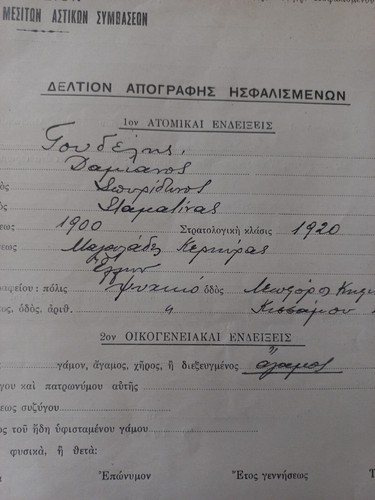 ΜΕΣΙΤΩΝ ΑΣΤΙΚΩΝ ΣΥΜΒΑΣΕΩΝ
ΔΕΛΤΙΟΝ ΑΠΟΓΡΑΦΗΣ ΗΣΦΑΛΙΣΜΕΝΩΝ
1ον ΑΤΟΜΙΚΑΙ ΕΝΔΕΙΞΕΙΣ
Γουδέλης
Δαμιανος
ὸς Σπυρίδωνος
ὸς Σταματίνας
σεως 1900 Στρατολογικὴ κλάσις 1920
σεως Κερκύρας
Ἕλλην
ραφείου : πόλις Ψυχικό ὁδὸς
τος, ὁδὸς, ἀριθ. " Κισσάμου
2ον ΟΙΚΟΓΕΝΕΙΑΚΑΙ ΕΝΔΕΙΞΕΙΣ
γάμον, ἄγαμος, χῆρος, ἢ διεζευγμένος ἄγαμος
γου καὶ πατρωνύμου αὐτῆς
σεως συζύγου
ως τοῦ ἤδη ὑφισταμένου γάμου
φυσικά, ἢ θετά:
Ἐπώνυμον Ἔτος γεννήσεως